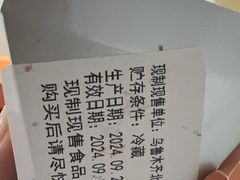 现制现售单位：乌鲁木齐北
贮存条件：冷藏
生产日期：2024.09.2
有效日期：2024.09.
现制现售食品
购买后请尽